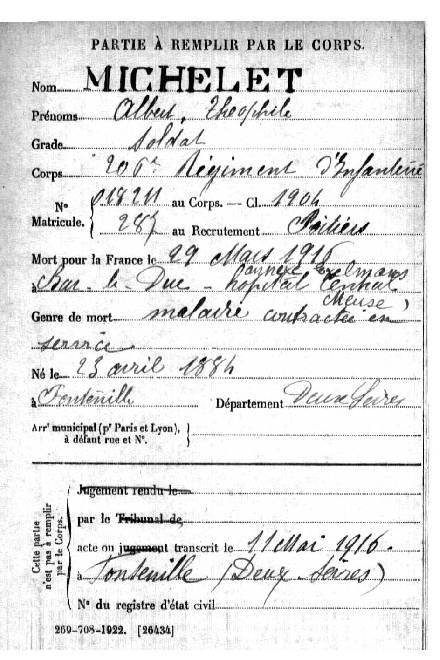 PARTIE À REMPLIR PAR LE CORPS.
Nom MICHELET
Prénoms Albert, Théophile
Grade Soldat
Corps 206e Régiment d'Infanterie
N° 018211 au Corps. — Cl. 1904
Matricule. 287 au Recrutement Poitiers
Mort pour la France le 29 Mars 1916
annexe Exelmans
à Bar-le-Duc - hôpital Central
Meuse)
Genre de mort maladie contractée en
service
Né le 23 avril 1884
à Fontenille Département Deux Sèvres
Arrt municipal (pr Paris et Lyon),
à défaut rue et N°.
Cette partie
n'est pas à remplir
par le Corps.
Jugement rendu le
par le Tribunal de
acte ou jugement transcrit le 11 Mai 1916.
à Fontenille (Deux-Sèvres)
N° du registre d'état civil
269-708-1922. [26434]